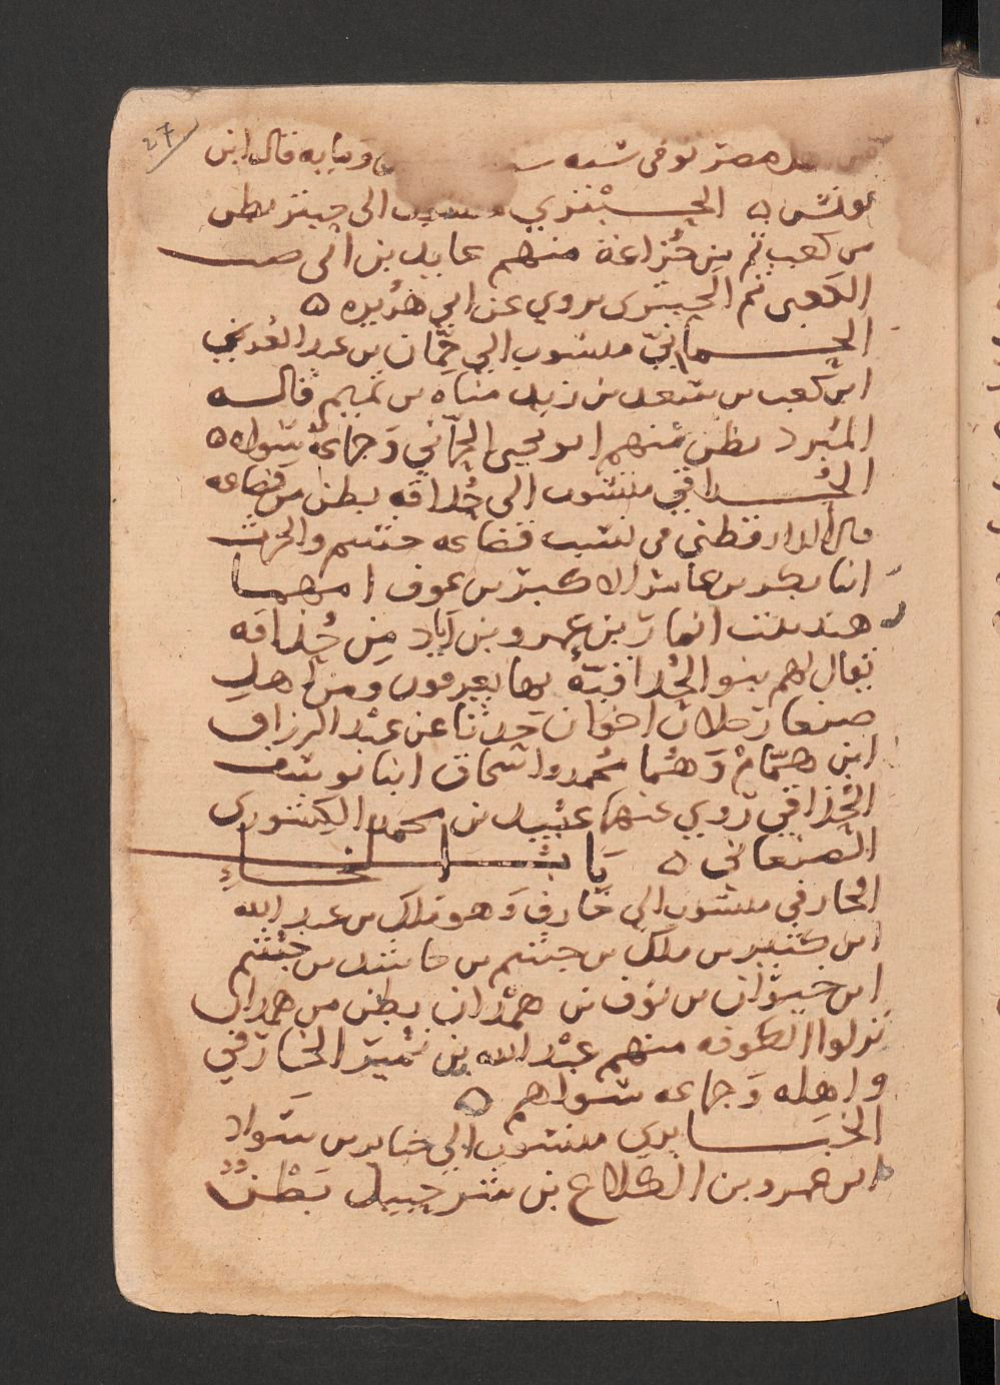 27
مصر توفى سنه وبابه قاله ابن
يونس ه الحبتري منسوب الى حبتر بطن
من كعب ثم من خُزاعة منهم عابد بن ابى صعب
الكعبى ثم الحبترى يروي عن ابي هرُيره ه
الحمانيّ منسوب الي حِمّان بن عبد العُزي
ابن كعب بن سعد بن زيد مناه بن تميم قاله
المبُرد بطن منهم ابو يحيى الحِمّاني وَجماعة سواه ه
الحُداقي منسوب الى حُداقه بطن من قضاعه
قال الدارقطني في نسب قضاعه جشم والحرث
ابنا بكر بن عامر الاكبر بن عوف امهما
هند بنت انمار بن عمرو بن اياد مِن حُذاقه
يقال لهم بنو الحُذاقيّة بها يعرفون ومن اهل
صنعا رجلان اخوان حَدثنا عن عبْد الرزاق
ابن همّام وَهُما مُحمد واسحاق ابنا يوسف
الحُذاقي رَوي عنهما عبُيد بن محمد الكِشوري
الصنعاني ه بَابُ الخَاءِ
الخارفي منسوب الي خارِف وَهو ملك بن عبد الله
ابن كثير بن ملك بن جشم بن حاشد بن جشم
ابن خيوْان بن نوف بن همْدان بطن من همدان
نزلوا الكوفه منهم عبْد الله بن نمُير الخارَفي
واهله وَجماعه سواهم ه
الخَبايري منسوب الي خباير بن سَواد
ابن عمرو بن الكلاع بن شرحبيل بَطْنٌ